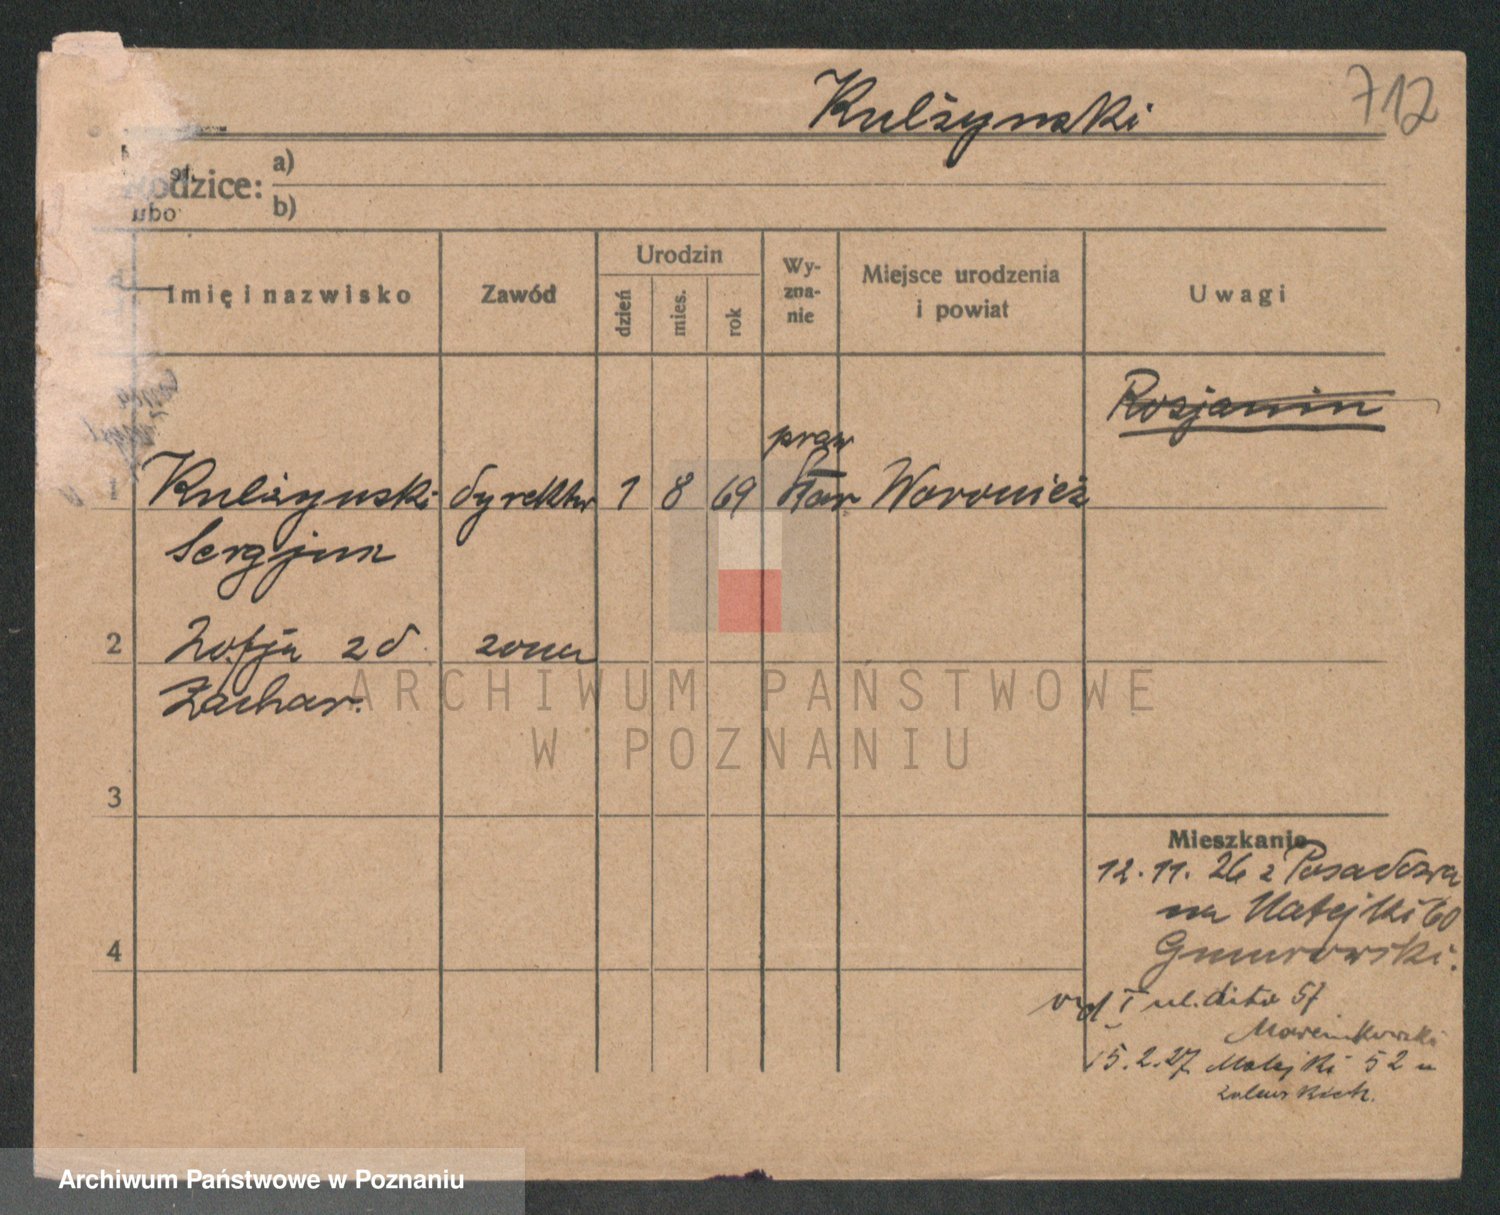 Kulżynski 712
Rodzice: a)
b)
ubo
Imię i nazwisko Zawód Urodzin Wy-zna-nie Miejsce urodzenia i powiat Uwagi
dzień mies. rok
Rosjanin
praw
Kulżynski dyrektor 1 8 69 Woronież
Sergjusz
2 Zofja zd. żona
Zachar.
ARCHIWUM PAŃSTWOWE
W POZNANIU
3
Mieszkanie
12.11.26 z Posadowa
na Matejki 60
Gmurowski.
4
ul. dito 57
Marcinkowski
15.2.27 Matejki 52 u
Archiwum Państwowe w Poznaniu